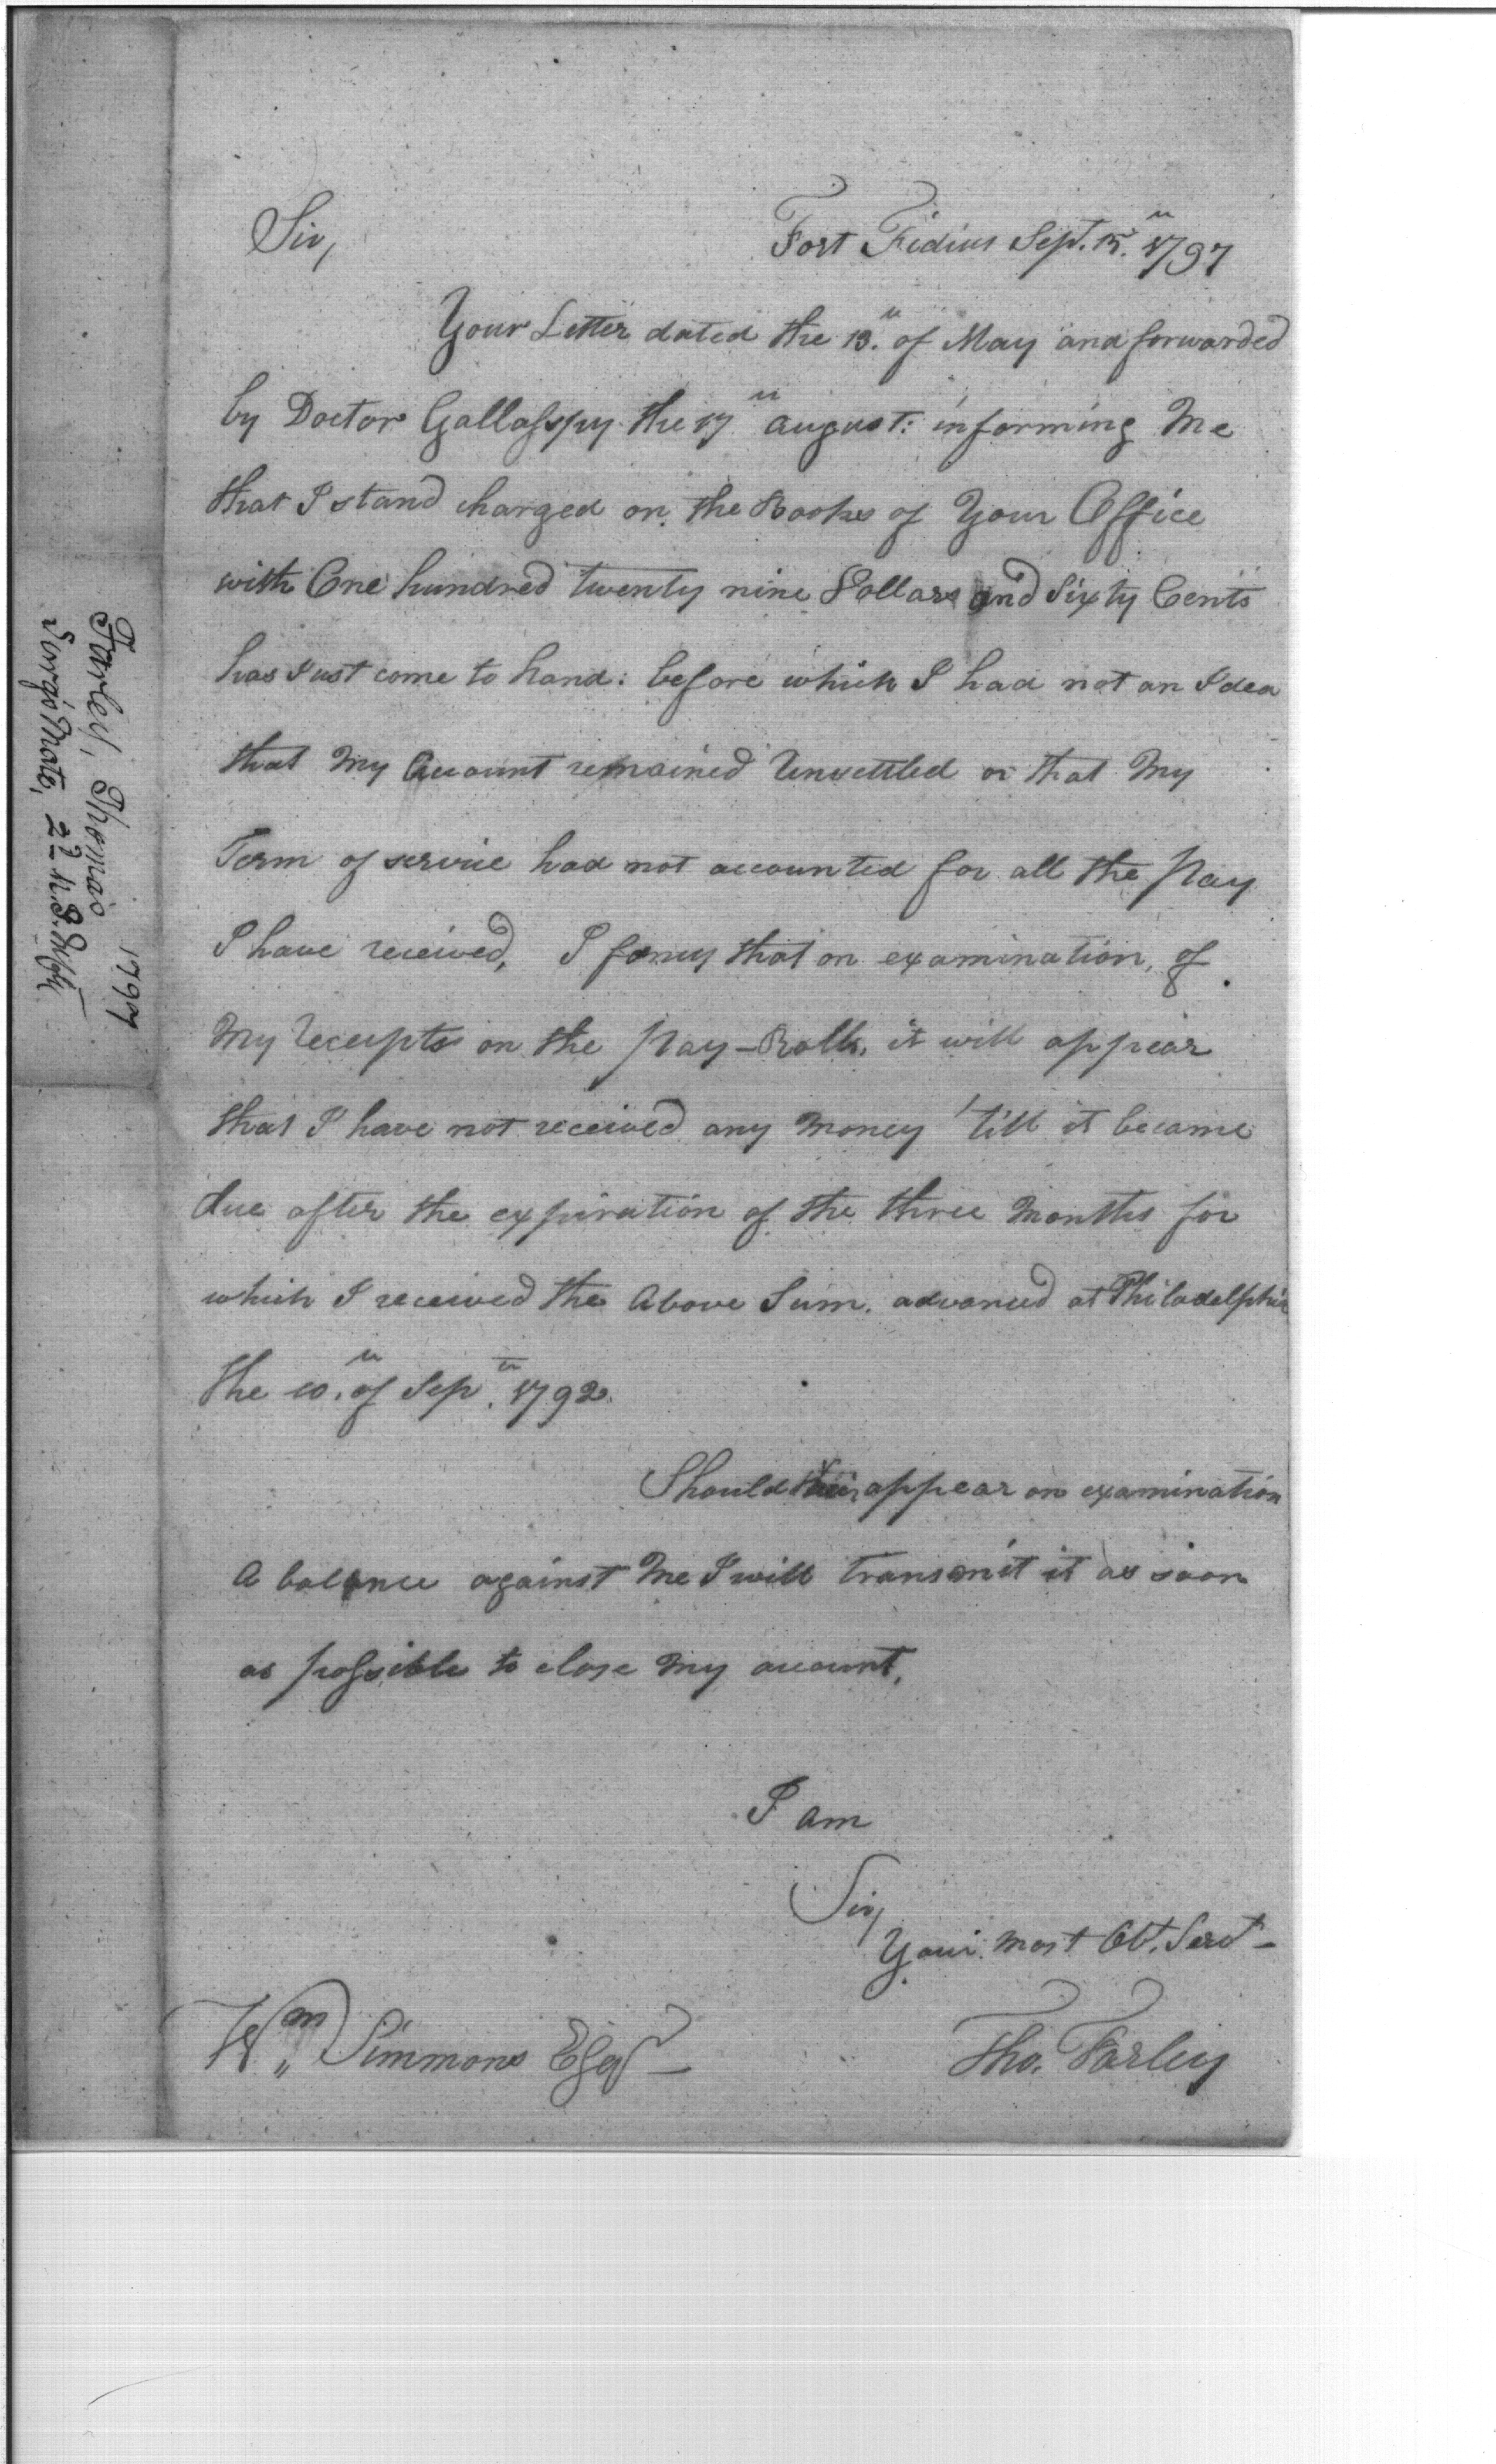 Farley, Thomas 1797
Surg's Mate, 2d U.S. Inf'y
Sir,
Fort Fidius Sept. 15.th 1797
Your Letter dated the 13.th of May and forwarded
by Doctor Gallasspy the 17th august: informing Me
that I stand charged on the Books of Your Office
with One hundred twenty nine Dollars and Sixty Cents
has Just come to hand: before which I had not an Idea
that My Account remained Unsettled or that My
Term of service had not accounted for all the pay
I have received, I fancy that on examination, of
My receipts on the pay-Rolls, it will appear
that I have not received any Money 'till it became
due after the expiration of the three Months for
which I received the Above Sum. advanced at Philadelphia
the 10.th of Sep.r 1792.
Should appear on examination
A balance against Me I will transmit it as soon
as possible to close My account,
I am
Sir,
Your Most Obt. Servt -
Wm Simmons Esqr -
Tho. Farley